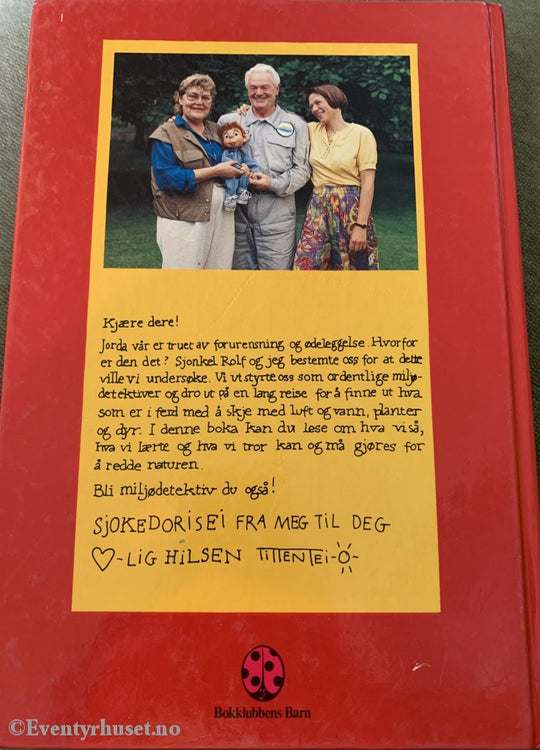 Kjære dere!
Jorda vår er truet av forurensning og ødeleggelse. Hvorfor
er den det? Sjonkel Rolf og jeg bestemte oss for at dette
ville vi undersøke. Vi utstyrte oss som ordentlige miljø-
detektiver og dro ut på en lang reise for å finne ut hva
som er i ferd med å skje med luft og vann, planter
og dyr. I denne boka kan du lese om hva vi så,
hva vi lærte og hva vi tror kan og må gjøres for
å redde naturen.
Bli miljødetektiv du også!
SJOKEDORISEI FRA MEG TIL DEG
♡-LIG HILSEN TITTENTEI
Bokklubbens Barn
©Eventyrhuset.no